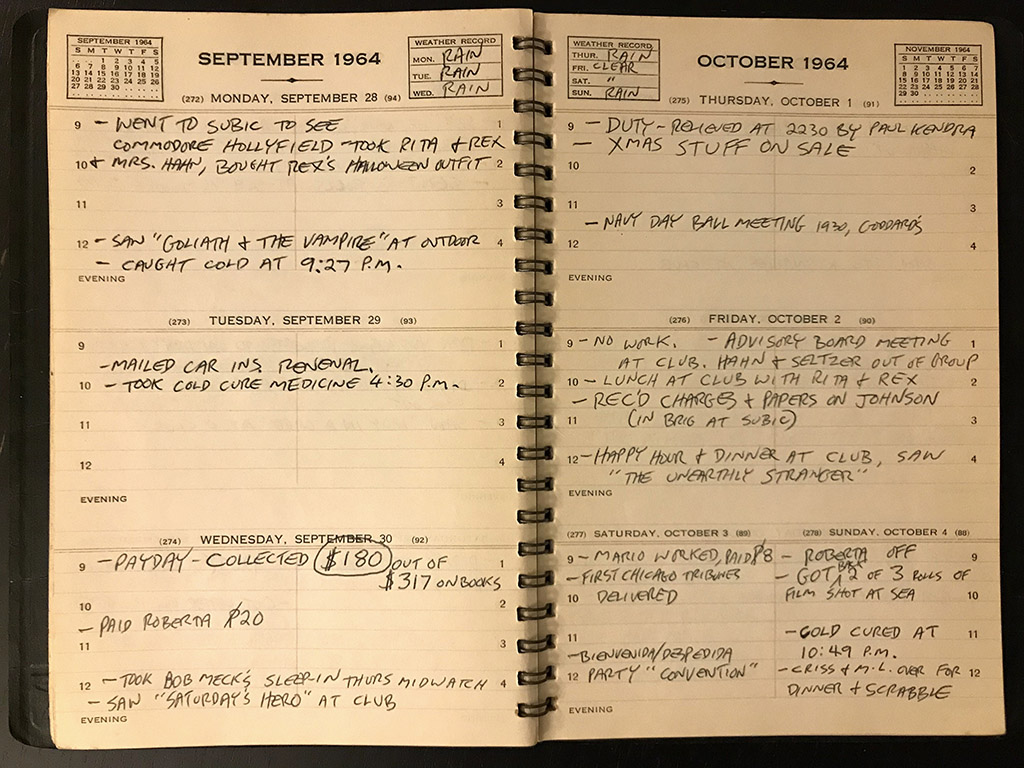 SEPTEMBER 1964
S M T W T F S
1 2 3 4 5
6 7 8 9 10 11 12
13 14 15 16 17 18 19
20 21 22 23 24 25 26
27 28 29 30
SEPTEMBER 1964
WEATHER RECORD
MON. RAIN
TUE. RAIN
WED. RAIN
(272) MONDAY, SEPTEMBER 28 (94)
9 - WENT TO SUBIC TO SEE 1
COMMODORE HOLLYFIELD - TOOK RITA & REX
10 & MRS. HAHN, BOUGHT REX'S HALLOWEEN OUTFIT 2
11 3
12 - SAW "GOLIATH & THE VAMPIRE" AT OUTDOOR 4
- CAUGHT COLD AT 9:27 P.M.
EVENING
(273) TUESDAY, SEPTEMBER 29 (93)
9 1
- MAILED CAR INS. RENEWAL.
10 - TOOK COLD CURE MEDICINE 4:30 P.M. 2
11 3
12 4
EVENING
(274) WEDNESDAY, SEPTEMBER 30 (92)
9 - PAYDAY - COLLECTED $180 OUT OF 1
$317 ON BOOKS
10 2
- PAID ROBERTA $20
11 3
12 - TOOK BOB MECK'S SLEEP-IN THURS MIDWATCH 4
- SAW "SATURDAY'S HERO" AT CLUB
EVENING
WEATHER RECORD
THUR. RAIN
FRI. CLEAR
SAT. "
SUN. RAIN
OCTOBER 1964
NOVEMBER 1964
S M T W T F S
1 2 3 4 5 6 7
8 9 10 11 12 13 14
15 16 17 18 19 20 21
22 23 24 25 26 27 28
29 30
(275) THURSDAY, OCTOBER 1 (91)
9 - DUTY - RELIEVED AT 2230 BY PAUL KENDRA
- XMAS STUFF ON SALE
10 2
11 3
- NAVY DAY BALL MEETING 1930, GODDARD'S
12 4
EVENING
(276) FRIDAY, OCTOBER 2 (90)
9 - NO WORK. - ADVISORY BOARD MEETING 1
AT CLUB. HAHN & SELTZER OUT OF GROUP
10 - LUNCH AT CLUB WITH RITA & REX 2
- REC'D CHARGES & PAPERS ON JOHNSON
11 (IN BRIG AT SUBIC) 3
12 - HAPPY HOUR & DINNER AT CLUB, SAW 4
"THE UNEARTHLY STRANGER"
EVENING
(277) SATURDAY, OCTOBER 3 (89)
9 - MARIO WORKED, PAID $8
- FIRST CHICAGO TRIBUNES
10 DELIVERED
11
- BIENVENIDA/DESPEDIDA
12 PARTY "CONVENTION"
EVENING
(278) SUNDAY, OCTOBER 4 (88)
- ROBERTA OFF 9
- GOT BACK 2 OF 3 ROLLS OF
FILM SHOT AT SEA 10
- COLD CURED AT 11
10:49 P.M.
- CRISS & M.L. OVER FOR 12
DINNER & SCRABBLE